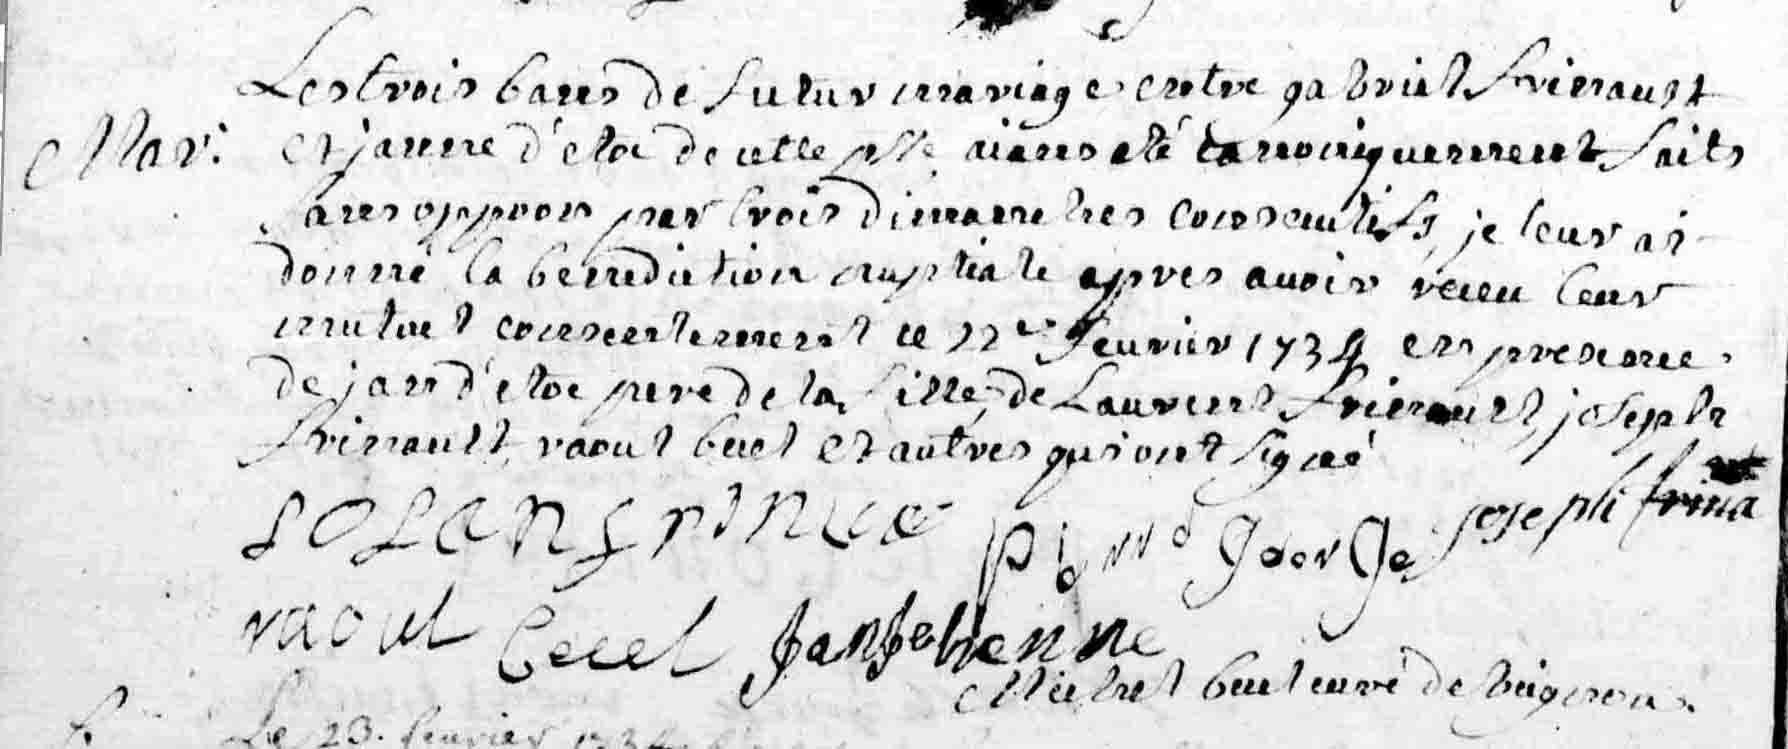 Les trois bans de futur mariage entre gabriel frinault
Mar: et janne d'étoc de cette psse aians eté canoniquement faits
sans oppoon par trois dimanches consecutifs, je leur ai
donné la benediction nuptiale apres avoir receu leur
mutuel consentement ce 22e fevrier 1734 en presence
de jan d'étoc pere de la fille, de Laurent frinault, joseph
frinault, raoul becel et autres qui ont signé
joseph frina
george
raoul becel janjehenne
Michel becel curé de
Le 23. fevrier 1734